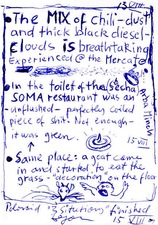 15 VIII
• The MIX of chili-dust
and thick black diesel-
clouds is breathtaking
Experienced @ the Mercato
• In the toilet of the
SOMA restaurant was an
-unflushed- perfectly coiled
piece of shit. Not enough-
it was green.
15 VIII
• Same place: a goat came
in and started to eat the
grass-"decoration on the floor
finished
15 VIII